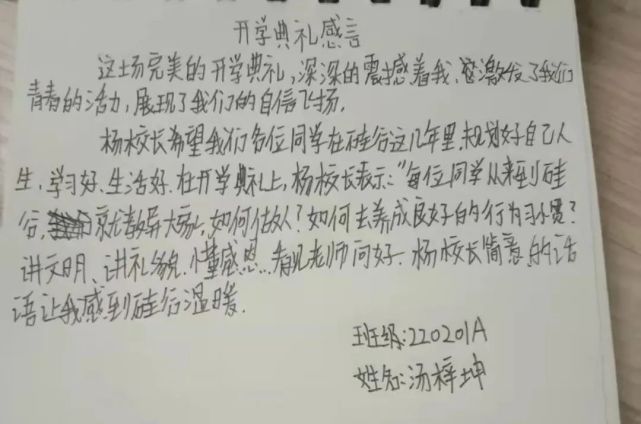 开学典礼感言
这场完美的开学典礼,深深的震撼着我,激发了我们
青春的活力,展现了我们的自信飞扬.
杨校长希望我们各位同学在硅谷这几年里,规划好自己人
生,学习好、生活好.在开学典礼上,杨校长表示:"每位同学从来到硅
谷,就教导大家,如何做人?如何去养成良好的行为习惯?
讲文明、讲礼貌、懂感恩...看见老师问好.杨校长简意的话
语让我感到硅谷温暖.
班级:220201A
姓名:汤梓坤